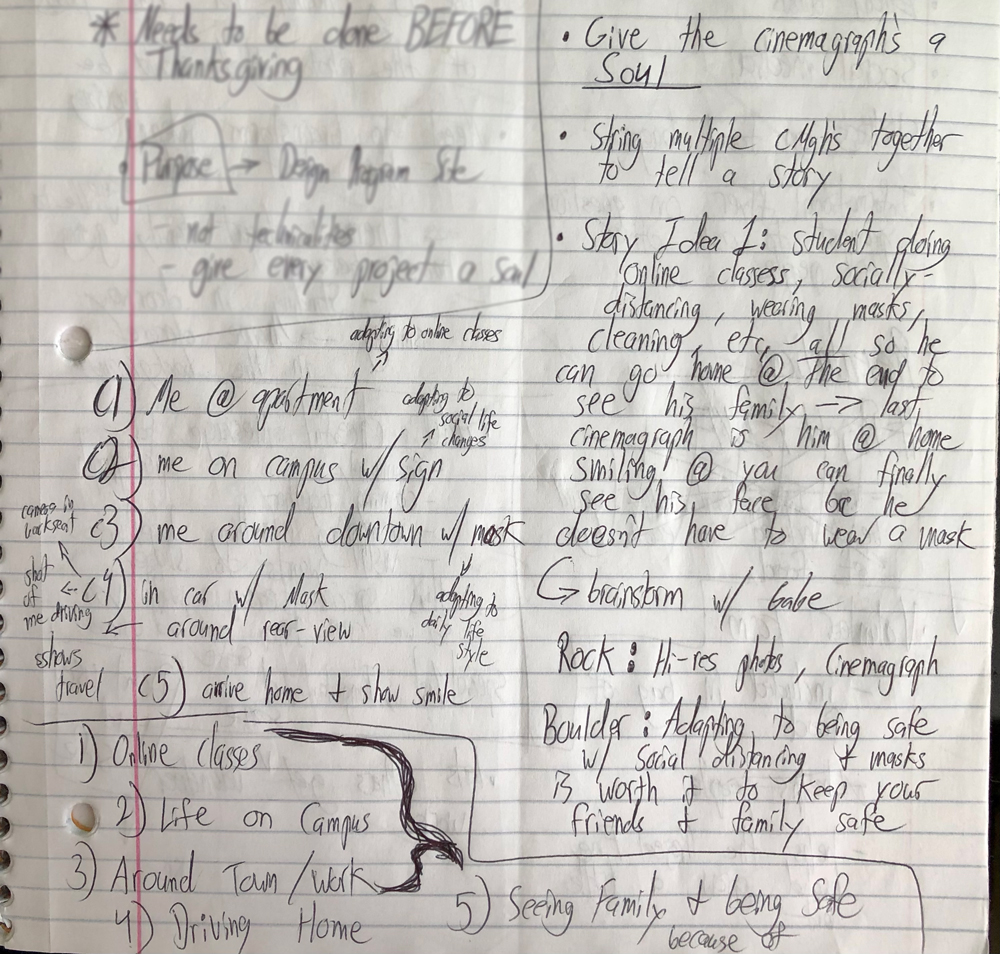 * Needs to be done BEFORE
Thanksgiving
Purpose → Design Program Site
- not technicalities
- give every project a soul
adapting to online classes
C1) Me @ apartment
adapting to
social life
changes
C2) me on campus w/ sign
camera in
backseat
C3) me around downtown w/ mask
shot
of
me driving
C4) in car w/ Mask
around rear-view
adapting to
daily life
style
sshows
travel
C5) arrive home + show smile
1) Online Classes
2) Life on Campus
3) Around Town / Work
4) Driving Home
• Give the cinemagraph's a
Soul
• String multiple cMgh's together
to tell a story
• Story Idea 1: student doing
online classess, socially-
distancing, wearing masks,
cleaning, etc, all so he
can go home @ the end to
see his family → last
cinemagraph is him @ home
smiling @ you can finally
see his face bc he
doesn't have to wear a mask
↳ brainstorm w/ Gabe
Rock: Hi-res photos, Cinemagraph
Boulder: Adapting to being safe
w/ social distancing + masks
is worth it to keep your
friends + family safe
5) Seeing Family + being Safe
because of